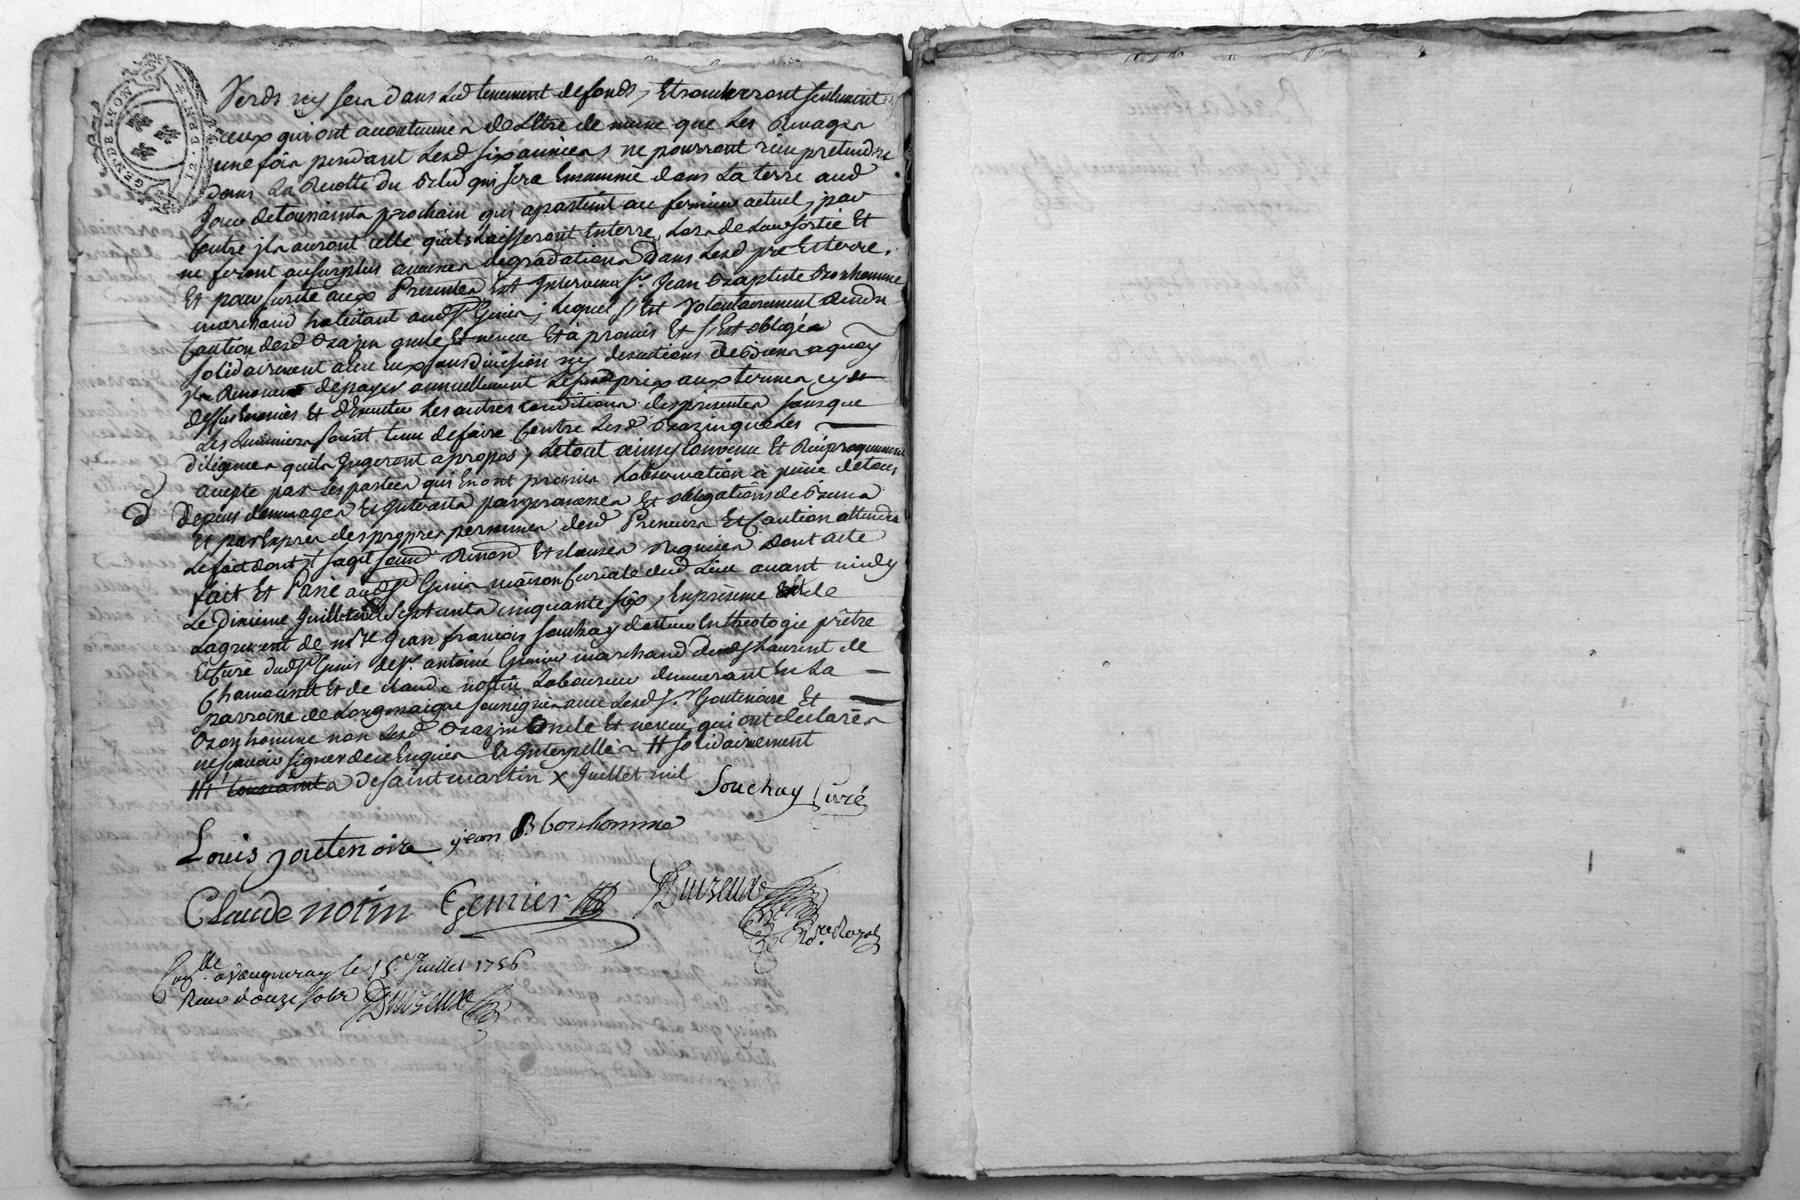 GEN. DE LYON
Verds ny sec dans led tenement de fonds, Et
ceux qui ont accoutumer de Letre de meme que Les
une fois pendant Lesd six année ne pourront rien pretendre
dans La du Bled qui sera Ensemmé dans La terre aud
Jour de toussaints prochain qui apartient au fermier actuel, par
Contre ils auront celle quils Laisseront En terre Lors de Leur sortie Et
ne feront au surplus aucunes degradations dans Lesd pré Et terre.
Et pour sureté aux Presentes Est Intervenu Sr. Jean Baptiste Bonhomme
marchand habitant aud St Genis, Lequel s'Est Volontairement Rendu
Caution desd Bazin oncle Et neveu Et à promis Et s'Est obligé
solidairement avec eux sans division ny de Biens a quoy
Renoncé de payer annuellement Led prix aux termes cy
dessus Enoncés Et d'Executer Les autres conditions des presentes sans que
Les Luminiers soint tenu de faire Contre Lesd Bazin que Les
diligences quils Jugeront a propos, Le tout ainsy convenu Et Reciproquement
accepté par Les parties qui En ont promis Lobservation à peine de tous
Depens dommages Et Interests par promesses Et obligations de Biens
Et par Exprès des propres personnes desd Preneurs Et Caution attendu
Le fait dont s'agit Renon Et clauses Requises dont acte
fait Et Passé aud St Genis maison Curiale dud Lieu avant midy
Le Dixieme Juillet Sept cents cinquante six, En présence Et de
Lagrement de mre Jean françois Souchay docteur En theologie prêtre
Et Curé dud St Genis de Sr. antoine Genier marchand de St Laurent de
Chamousset Et de claude nottin Laboureur demeurant En La
parroisse de Longesaigne soussignés avec Lesd Sr. Goutenoire Et
Bonhomme non Lesd Bazin Oncle Et neveu qui ont declarés
ne sçavoir signer de ce Enquis Et Interpellés # solidairement
de saint martin X Juillet mil
Souchay Curé
Louis goutenoire jean B bonhomme
Claude notin Genier
a Vaugneray le 15e Juillet 1756
Reçu douze sols